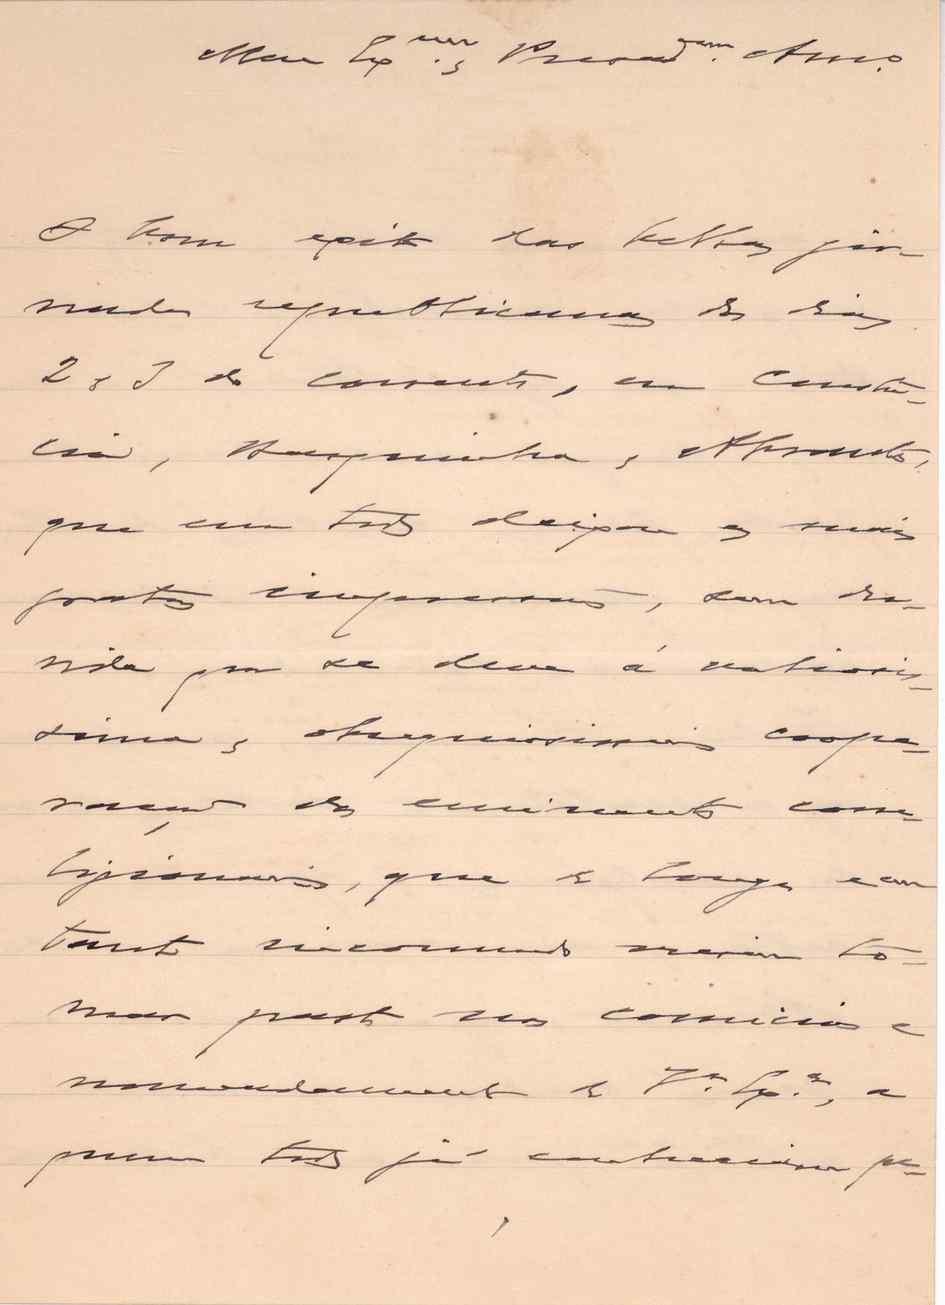 Meu Ex.mo e Prezad.mo Am.o
O bom exito das bellas jor
nadas republicanas dos dias
2 e 3 do corrente, em Constan-
cia, Barquinha e Abrantes,
que em todos deixou as mais
gratas impressões, sem du-
vida que se deve á valiosis-
sima e obsequiosissima coope-
ração dos eminentes corre-
ligionarios, que de longe e com
tanto incommodo vieram to-
mar parte nos comicios e
nomeadamente de V.a Ex.a, a
quem todos já conheciam pe-